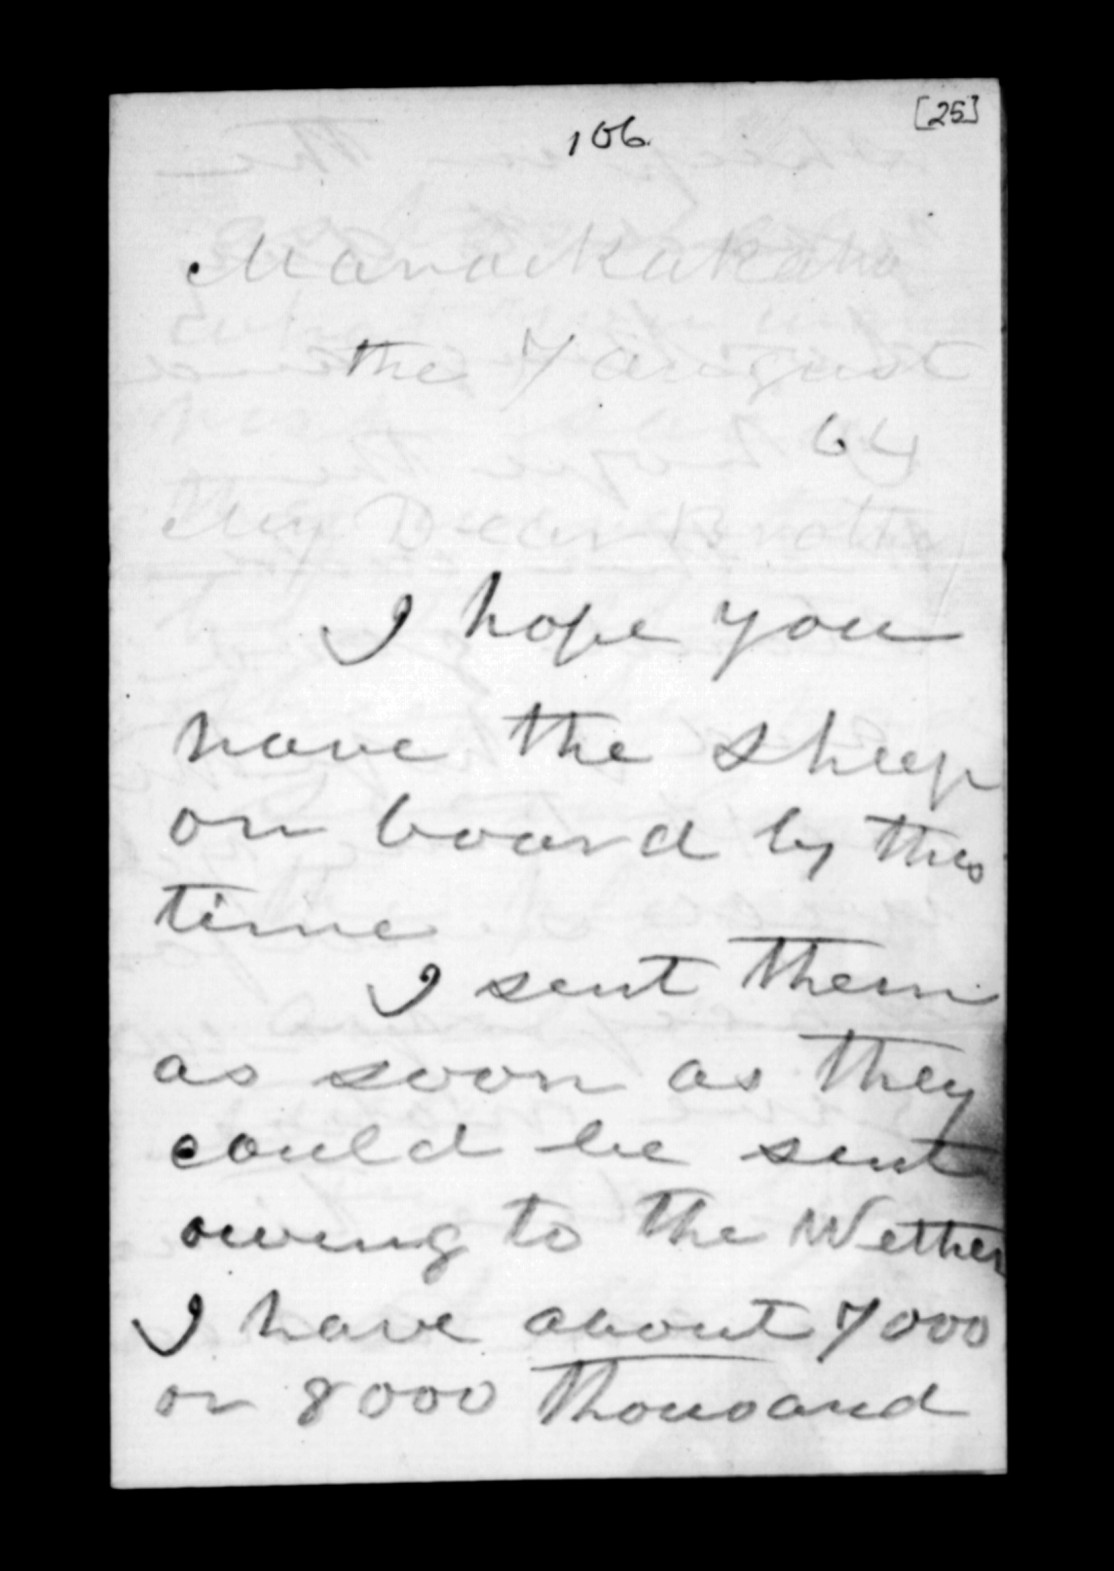 [25]
106
Maraekakaho
the 7 august
64
My Dear Brother
I hope you
have the sheep
on board by this
time
I sent them
as soon as they
could be sent
owing to the Wether
I have about 7000
or 8000 thousand